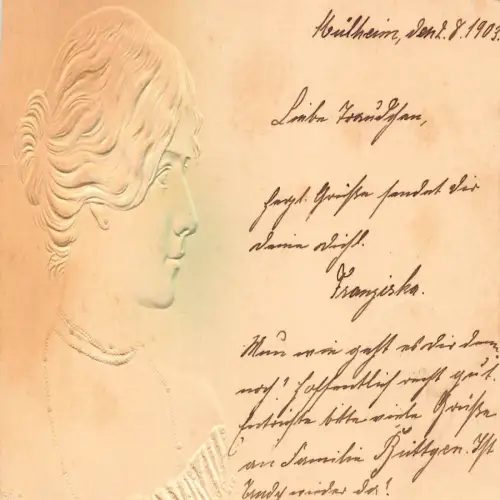 Mülheim, den 2.8.1903.
Liebe Traudchen,
herzl. Grüße sendet dir
deine dichl.
Franziska.
Nun wie geht es dir denn
noch? Hoffentlich recht gut.
Entrichte bitte viele Grüße
an Familie Büttgen. Ist
wieder da?